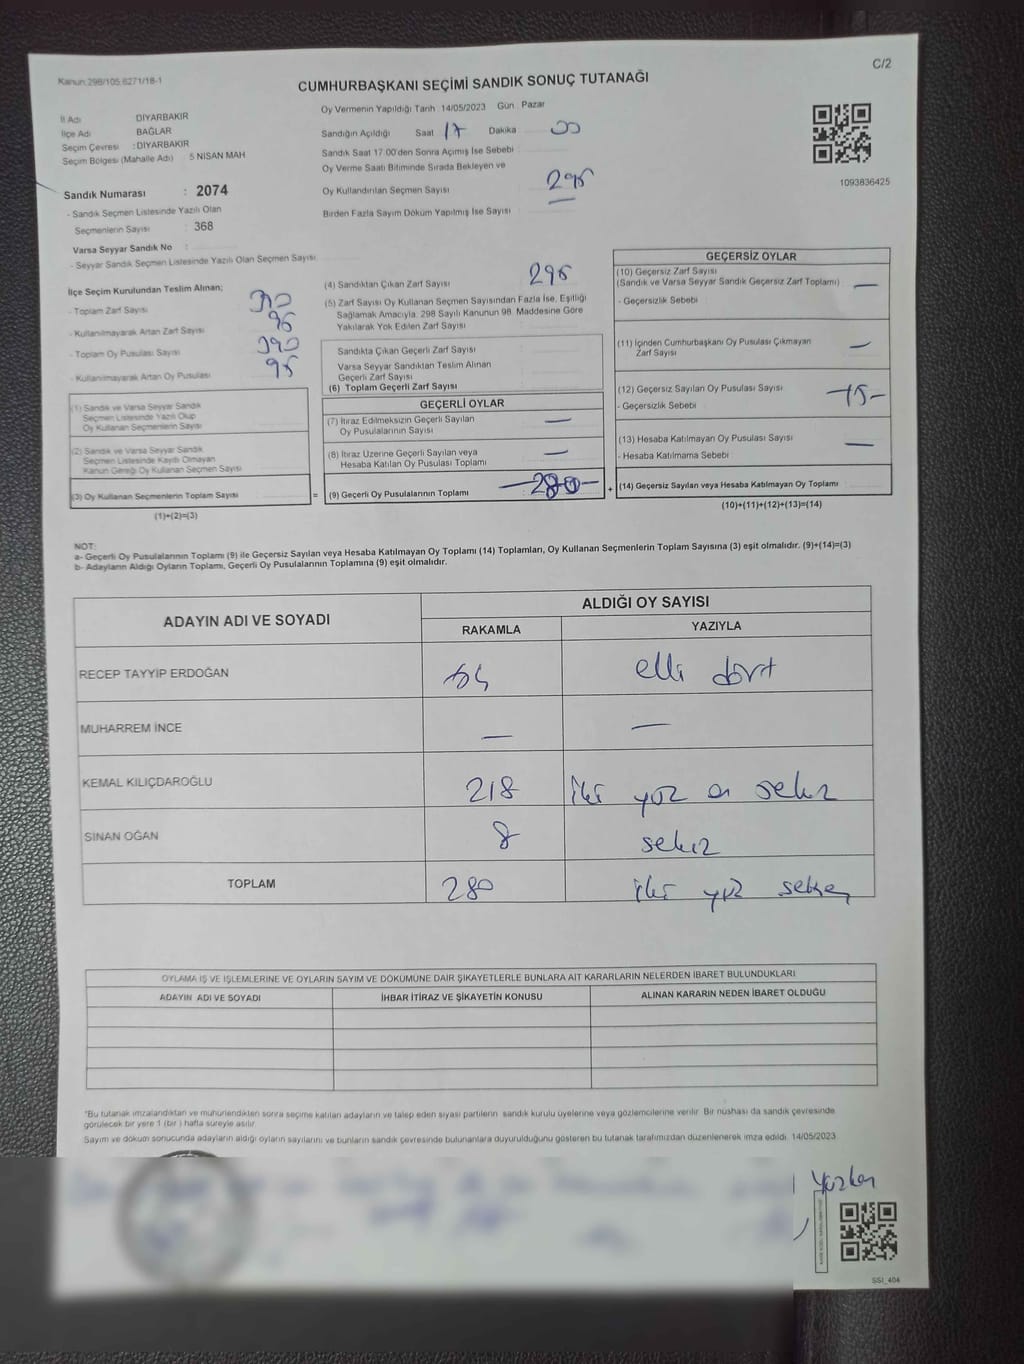 Kanun:298/105.6271/18-1
C/2
CUMHURBAŞKANI SEÇİMİ SANDIK SONUÇ TUTANAĞI
İl Adı DİYARBAKIR
İlçe Adı BAĞLAR
Seçim Çevresi : DİYARBAKIR
Seçim Bölgesi (Mahalle Adı) 5 NİSAN MAH
Oy Vermenin Yapıldığı Tarih 14/05/2023 Gün Pazar
Sandığın Açıldığı Saat 17 Dakika 00
Sandık Saat 17:00'den Sonra Açılmış İse Sebebi
Oy Verme Saati Bitiminde Sırada Bekleyen ve
Oy Kullandırılan Seçmen Sayısı 295
Birden Fazla Sayım Döküm Yapılmış İse Sayısı
1093836425
Sandık Numarası : 2074
- Sandık Seçmen Listesinde Yazılı Olan
Seçmenlerin Sayısı : 368
Varsa Seyyar Sandık No :
- Seyyar Sandık Seçmen Listesinde Yazılı Olan Seçmen Sayısı
İlçe Seçim Kurulundan Teslim Alınan;
- Toplam Zarf Sayısı 390
- Kullanılmayarak Artan Zarf Sayısı 95
- Toplam Oy Pusulası Sayısı 390
- Kullanılmayarak Artan Oy Pusulası 95
(1) Sandık ve Varsa Seyyar Sandık
Seçmen Listesinde Yazılı Olup
Oy Kullanan Seçmenlerin Sayısı
(2) Sandık ve Varsa Seyyar Sandık
Seçmen Listesinde Kayıtlı Olmayan
Kanun Gereği Oy Kullanan Seçmen Sayısı
(3) Oy Kullanan Seçmenlerin Toplam Sayısı
(1)+(2)=(3)
=
(4) Sandıktan Çıkan Zarf Sayısı 295
(5) Zarf Sayısı Oy Kullanan Seçmen Sayısından Fazla İse, Eşitliği
Sağlamak Amacıyla, 298 Sayılı Kanunun 98. Maddesine Göre
Yakılarak Yok Edilen Zarf Sayısı
Sandıkta Çıkan Geçerli Zarf Sayısı
Varsa Seyyar Sandıktan Teslim Alınan
Geçerli Zarf Sayısı
(6) Toplam Geçerli Zarf Sayısı
GEÇERLİ OYLAR
(7) İtiraz Edilmeksizin Geçerli Sayılan
Oy Pusulalarının Sayısı —
(8) İtiraz Üzerine Geçerli Sayılan veya
Hesaba Katılan Oy Pusulası Toplamı —
(9) Geçerli Oy Pusulalarının Toplamı —280—
+
GEÇERSİZ OYLAR
(10) Geçersiz Zarf Sayısı
(Sandık ve Varsa Seyyar Sandık Geçersiz Zarf Toplamı) —
- Geçersizlik Sebebi
(11) İçinden Cumhurbaşkanı Oy Pusulası Çıkmayan
Zarf Sayısı —
(12) Geçersiz Sayılan Oy Pusulası Sayısı —15—
- Geçersizlik Sebebi
(13) Hesaba Katılmayan Oy Pusulası Sayısı —
- Hesaba Katılmama Sebebi
(14) Geçersiz Sayılan veya Hesaba Katılmayan Oy Toplamı
(10)+(11)+(12)+(13)=(14)
NOT:
a- Geçerli Oy Pusulalarının Toplamı (9) ile Geçersiz Sayılan veya Hesaba Katılmayan Oy Toplamı (14) Toplamları, Oy Kullanan Seçmenlerin Toplam Sayısına (3) eşit olmalıdır. (9)+(14)=(3)
b- Adayların Aldığı Oyların Toplamı, Geçerli Oy Pusulalarının Toplamına (9) eşit olmalıdır.
ADAYIN ADI VE SOYADI
ALDIĞI OY SAYISI
RAKAMLA YAZIYLA
RECEP TAYYİP ERDOĞAN 54 elli dört
MUHARREM İNCE — —
KEMAL KILIÇDAROĞLU 218 iki yüz on sekiz
SİNAN OĞAN 8 sekiz
TOPLAM 280 iki yüz seksen
OYLAMA İŞ VE İŞLEMLERİNE VE OYLARIN SAYIM VE DÖKÜMÜNE DAİR ŞİKAYETLERLE BUNLARA AİT KARARLARIN NELERDEN İBARET BULUNDUKLARI
ADAYIN ADI VE SOYADI İHBAR İTİRAZ VE ŞİKAYETİN KONUSU ALINAN KARARIN NEDEN İBARET OLDUĞU
"Bu tutanak imzalandıktan ve mühürlendikten sonra seçime katılan adayların ve talep eden siyasi partilerin sandık kurulu üyelerine veya gözlemcilerine verilir. Bir nüshası da sandık çevresinde
görülecek bir yere 1 (bir) hafta süreyle asılır.
Sayım ve döküm sonucunda adayların aldığı oyların sayılarını ve bunların sandık çevresinde bulunanlara duyurulduğunu gösteren bu tutanak tarafımızdan düzenlenerek imza edildi. 14/05/2023
SSI_404